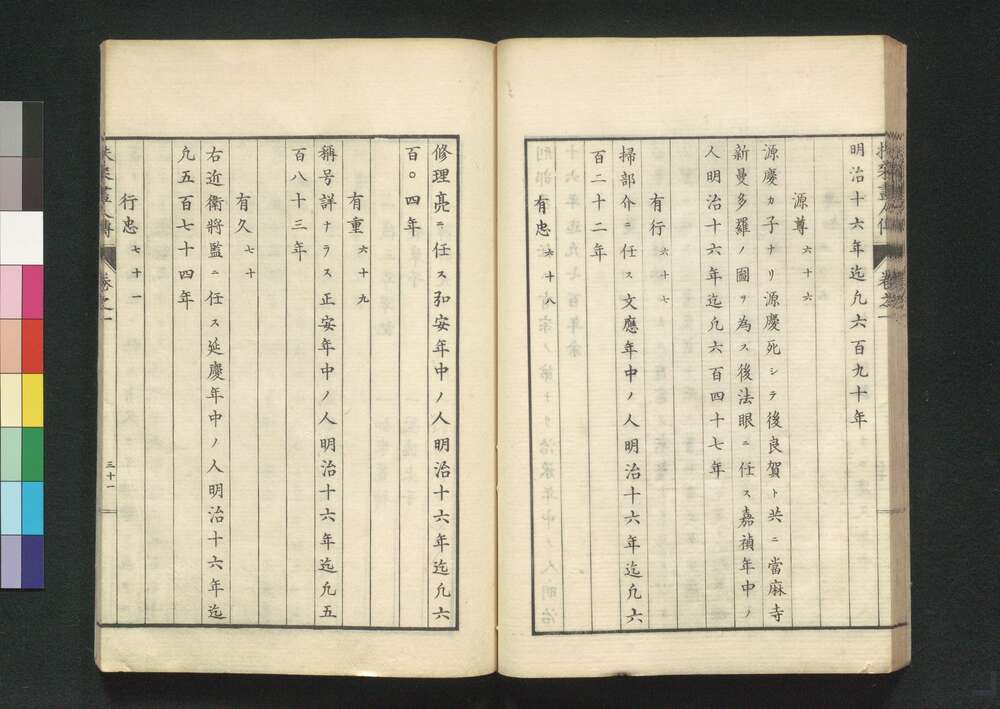 明治十六年迄凢六百九十年
源尊 六十六
源慶カ子ナリ源慶死シテ後良賀ト共ニ當麻寺
新曼多羅ノ圖ヲ為ス後法眼ニ任ス嘉禎年中ノ
人明治十六年迄凢六百四十七年
有行 六十七
掃部介ニ任ス文應年中ノ人明治十六年迄凢六
百二十二年
有忠 六十八
修理亮ニ任ス弘安年中ノ人明治十六年迄凢六
百〇四年
有重 六十九
稱号詳ナラス正安年中ノ人明治十六年迄凢五
百八十三年
有久 七十
右近衛將監ニ任ス延慶年中ノ人明治十六年迄
凢五百七十四年
行忠 七十一
卷之一
三十一